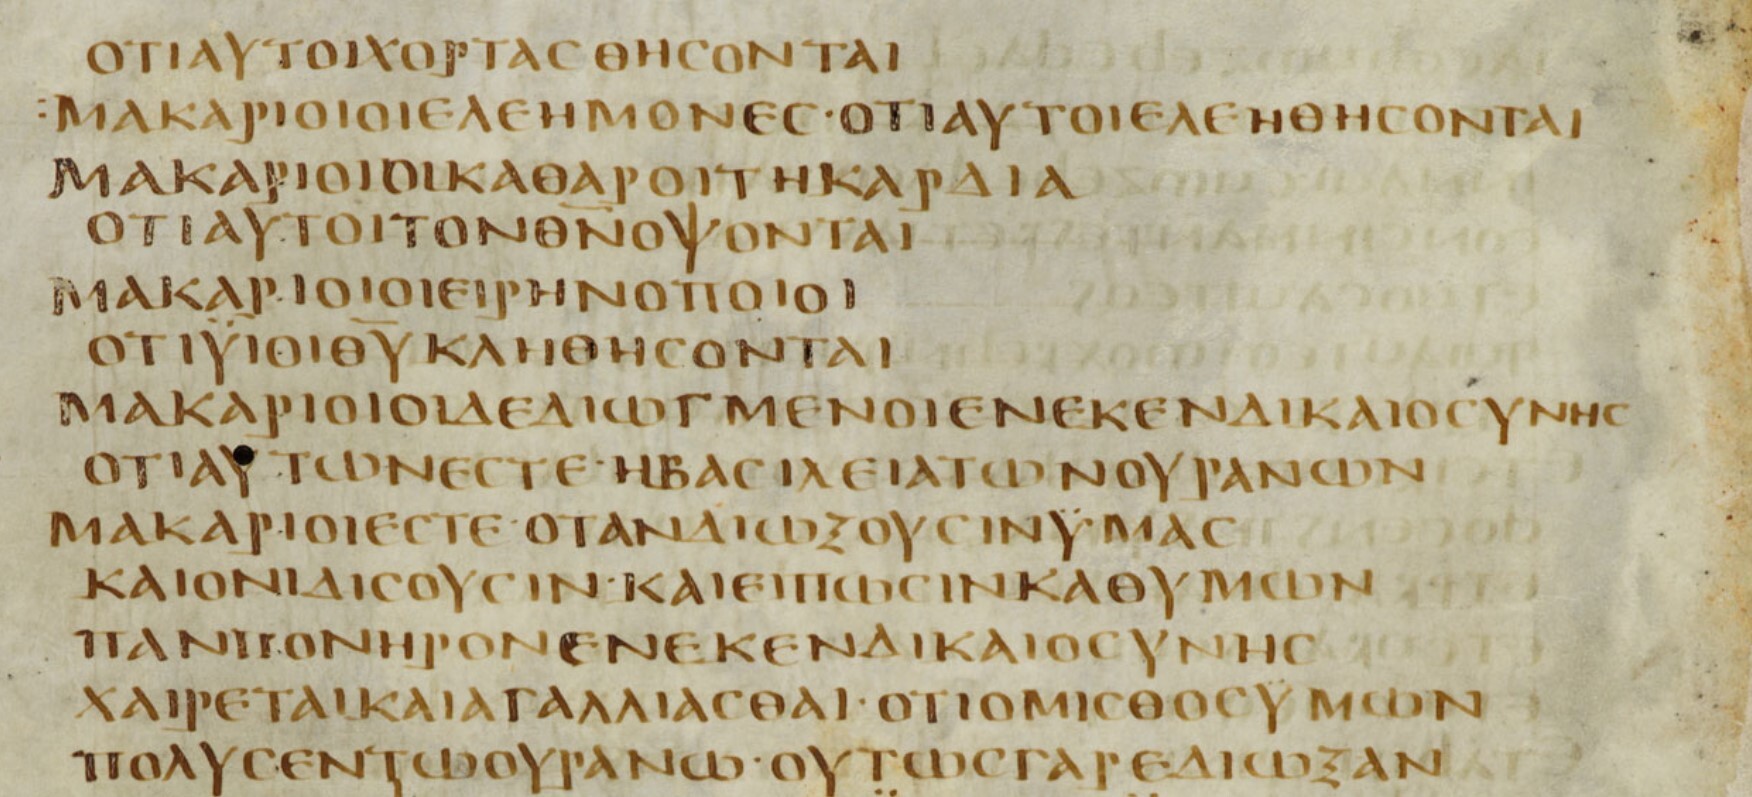 ΟΤΙΑΥΤΟΙΧΟΡΤΑСΘΗСΟΝΤΑΙ
:ΜΑΚΑΡΙΟΙΟΙΕΛΕΗΜΟΝΕС·ΟΤΙΑΥΤΟΙΕΛΕΗΘΗСΟΝΤΑΙ
ΜΑΚΑΡΙΟΙΟΙΚΑΘΑΡΟΙΤΗΚΑΡΔΙΑ
ΟΤΙΑΥΤΟΙΤΟΝΘ̅Ν̅ΟΨΟΝΤΑΙ
ΜΑΚΑΡΙΟΙΟΙΕΙΡΗΝΟΠΟΙΟΙ
ΟΤΙΫΙΟΙΘ̅Υ̅ΚΛΗΘΗСΟΝΤΑΙ
ΜΑΚΑΡΙΟΙΟΙΔΕΔΙΩΓΜΕΝΟΙΕΝΕΚΕΝΔΙΚΑΙΟСΥΝΗС
ΟΤΙΑΥΤΩΝΕСΤΕ·ΗΒΑСΙΛΕΙΑΤΩΝΟΥΡΑΝΩΝ
ΜΑΚΑΡΙΟΙΕСΤΕ·ΟΤΑΝΔΙΩΞΟΥСΙΝΫΜΑС
ΚΑΙΟΝΙΔΙСΟΥСΙΝ·ΚΑΙΕΙΠΩСΙΝΚΑΘΥΜΩΝ
ΠΑΝΠΟΝΗΡΟΝΕΝΕΚΕΝΔΙΚΑΙΟСΥΝΗС
ΧΑΙΡΕΤΑΙΚΑΙΑΓΑΛΛΙΑСΘΑΙ·ΟΤΙΟΜΙСΘΟСΫΜΩΝ
ΠΟΛΥСΕΝΤΩΟΥΡΑΝΩ·ΟΥΤΩСΓΑΡΕΔΙΩΞΑΝ